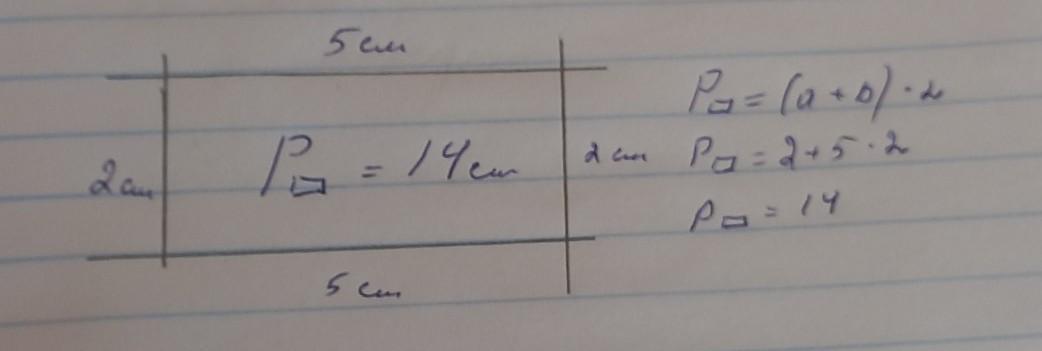 5 cm
2 cm
P▭ = 14 cm
2 cm
5 cm
P▭ = (a + b) · 2
P▭ = 2 + 5 · 2
P▭ = 14